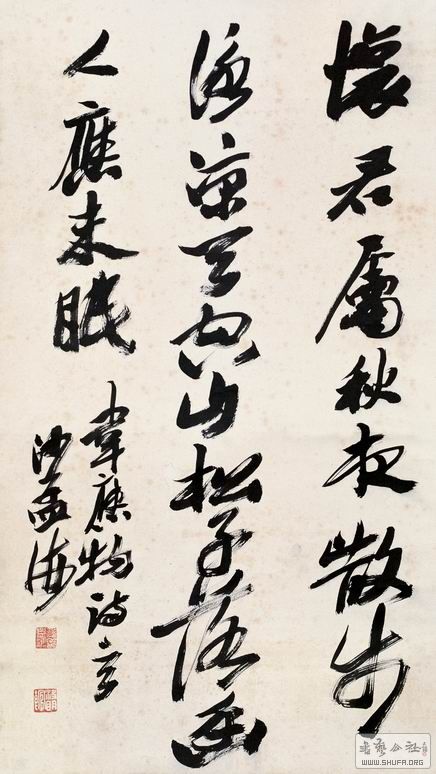 懷君屬秋夜散步
詠涼天空山松子落幽
人應未眠
韋應物詩
沙孟海
書藝公社
WWW.SHUFA.ORG